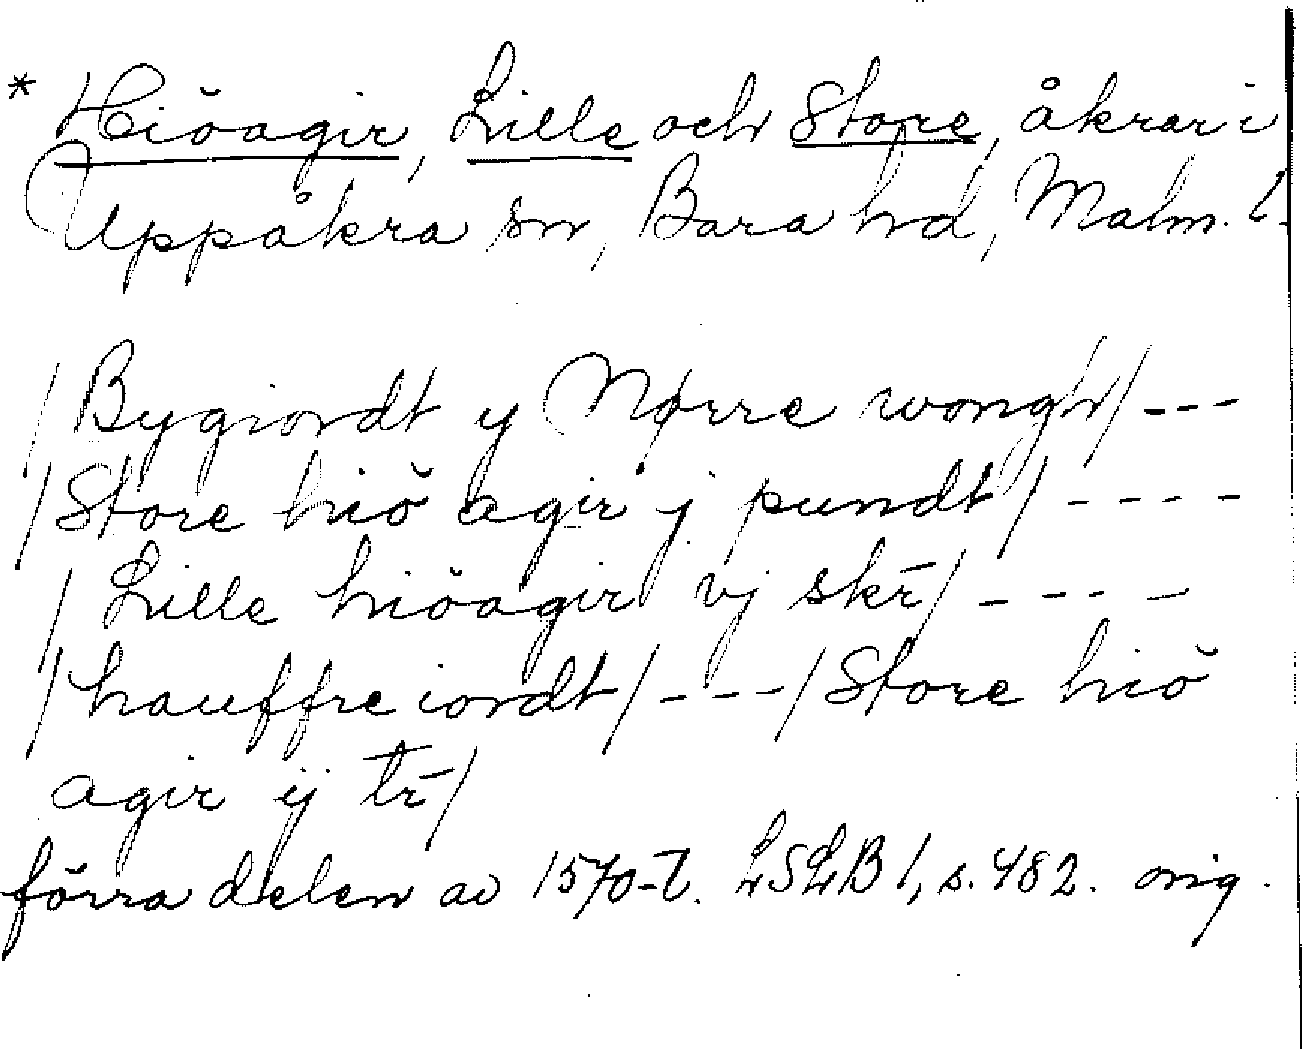 * Hiöagir, Lille och Store, åkrar i
Uppåkra sn, Bara hd, Malm. l.
/Bygiordt y Nørre wongh/ ---
/Store hiö agir j pundt/ ----
/Lille hiöagir vj skr̄/ ----
/hauffre iordt/ --- /Store hiö
agir ij tr̄/
förra delen av 1570-t. LSLB 1, s. 482. orig.